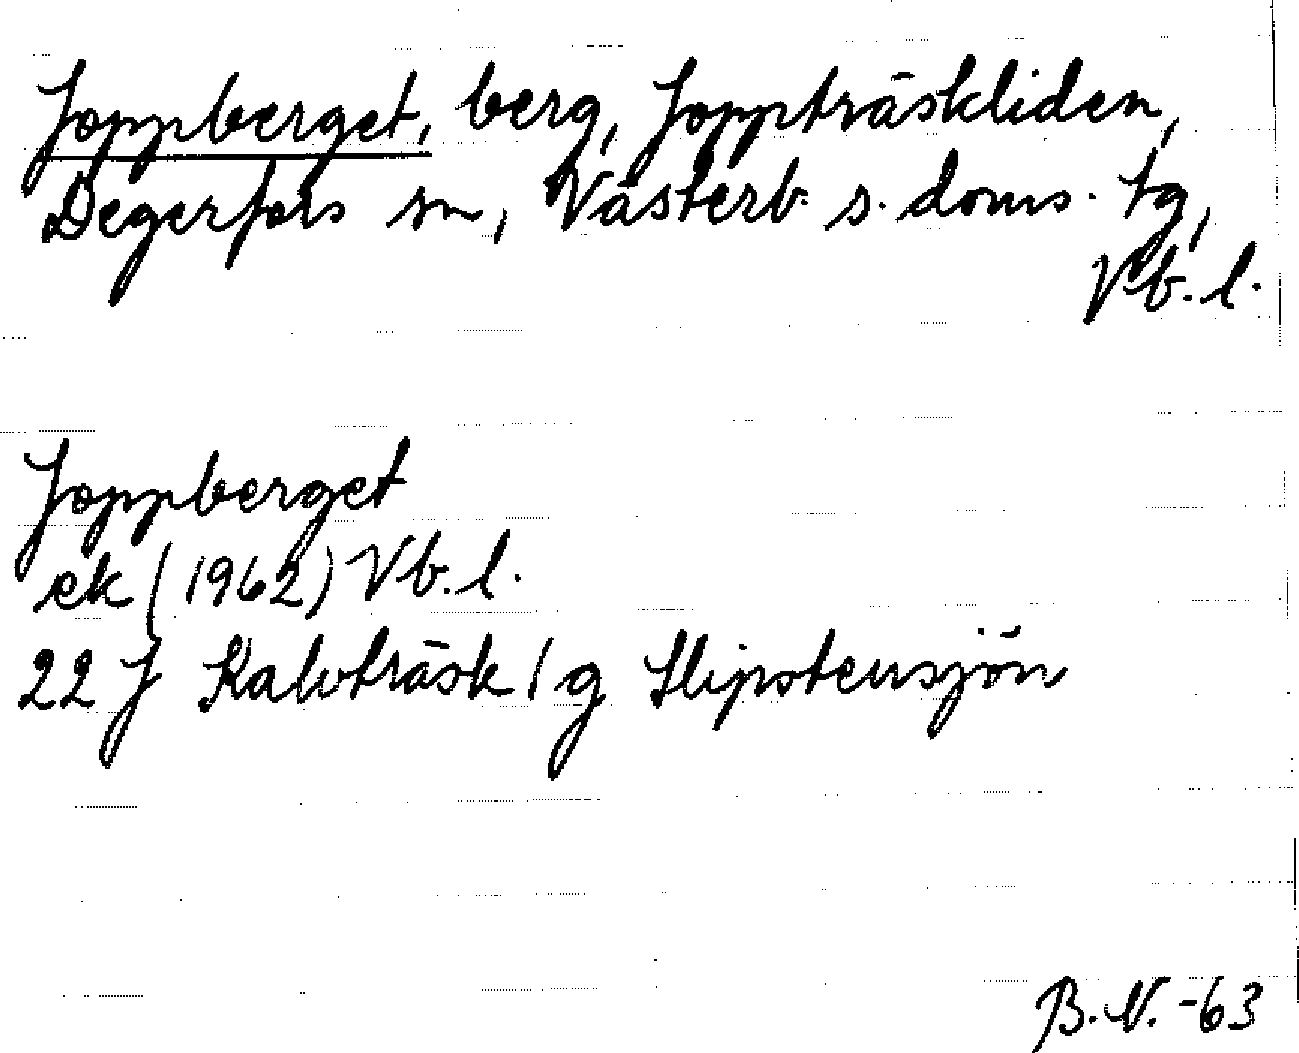 Joppberget, berg, Joppträskliden,
Degerfors sn, Västerb. s. doms. tg,
Vb. l.
Joppberget
ek (1962) Vb. l.
22 J Kalvträsk / g Slipstensjön
B. N. -63